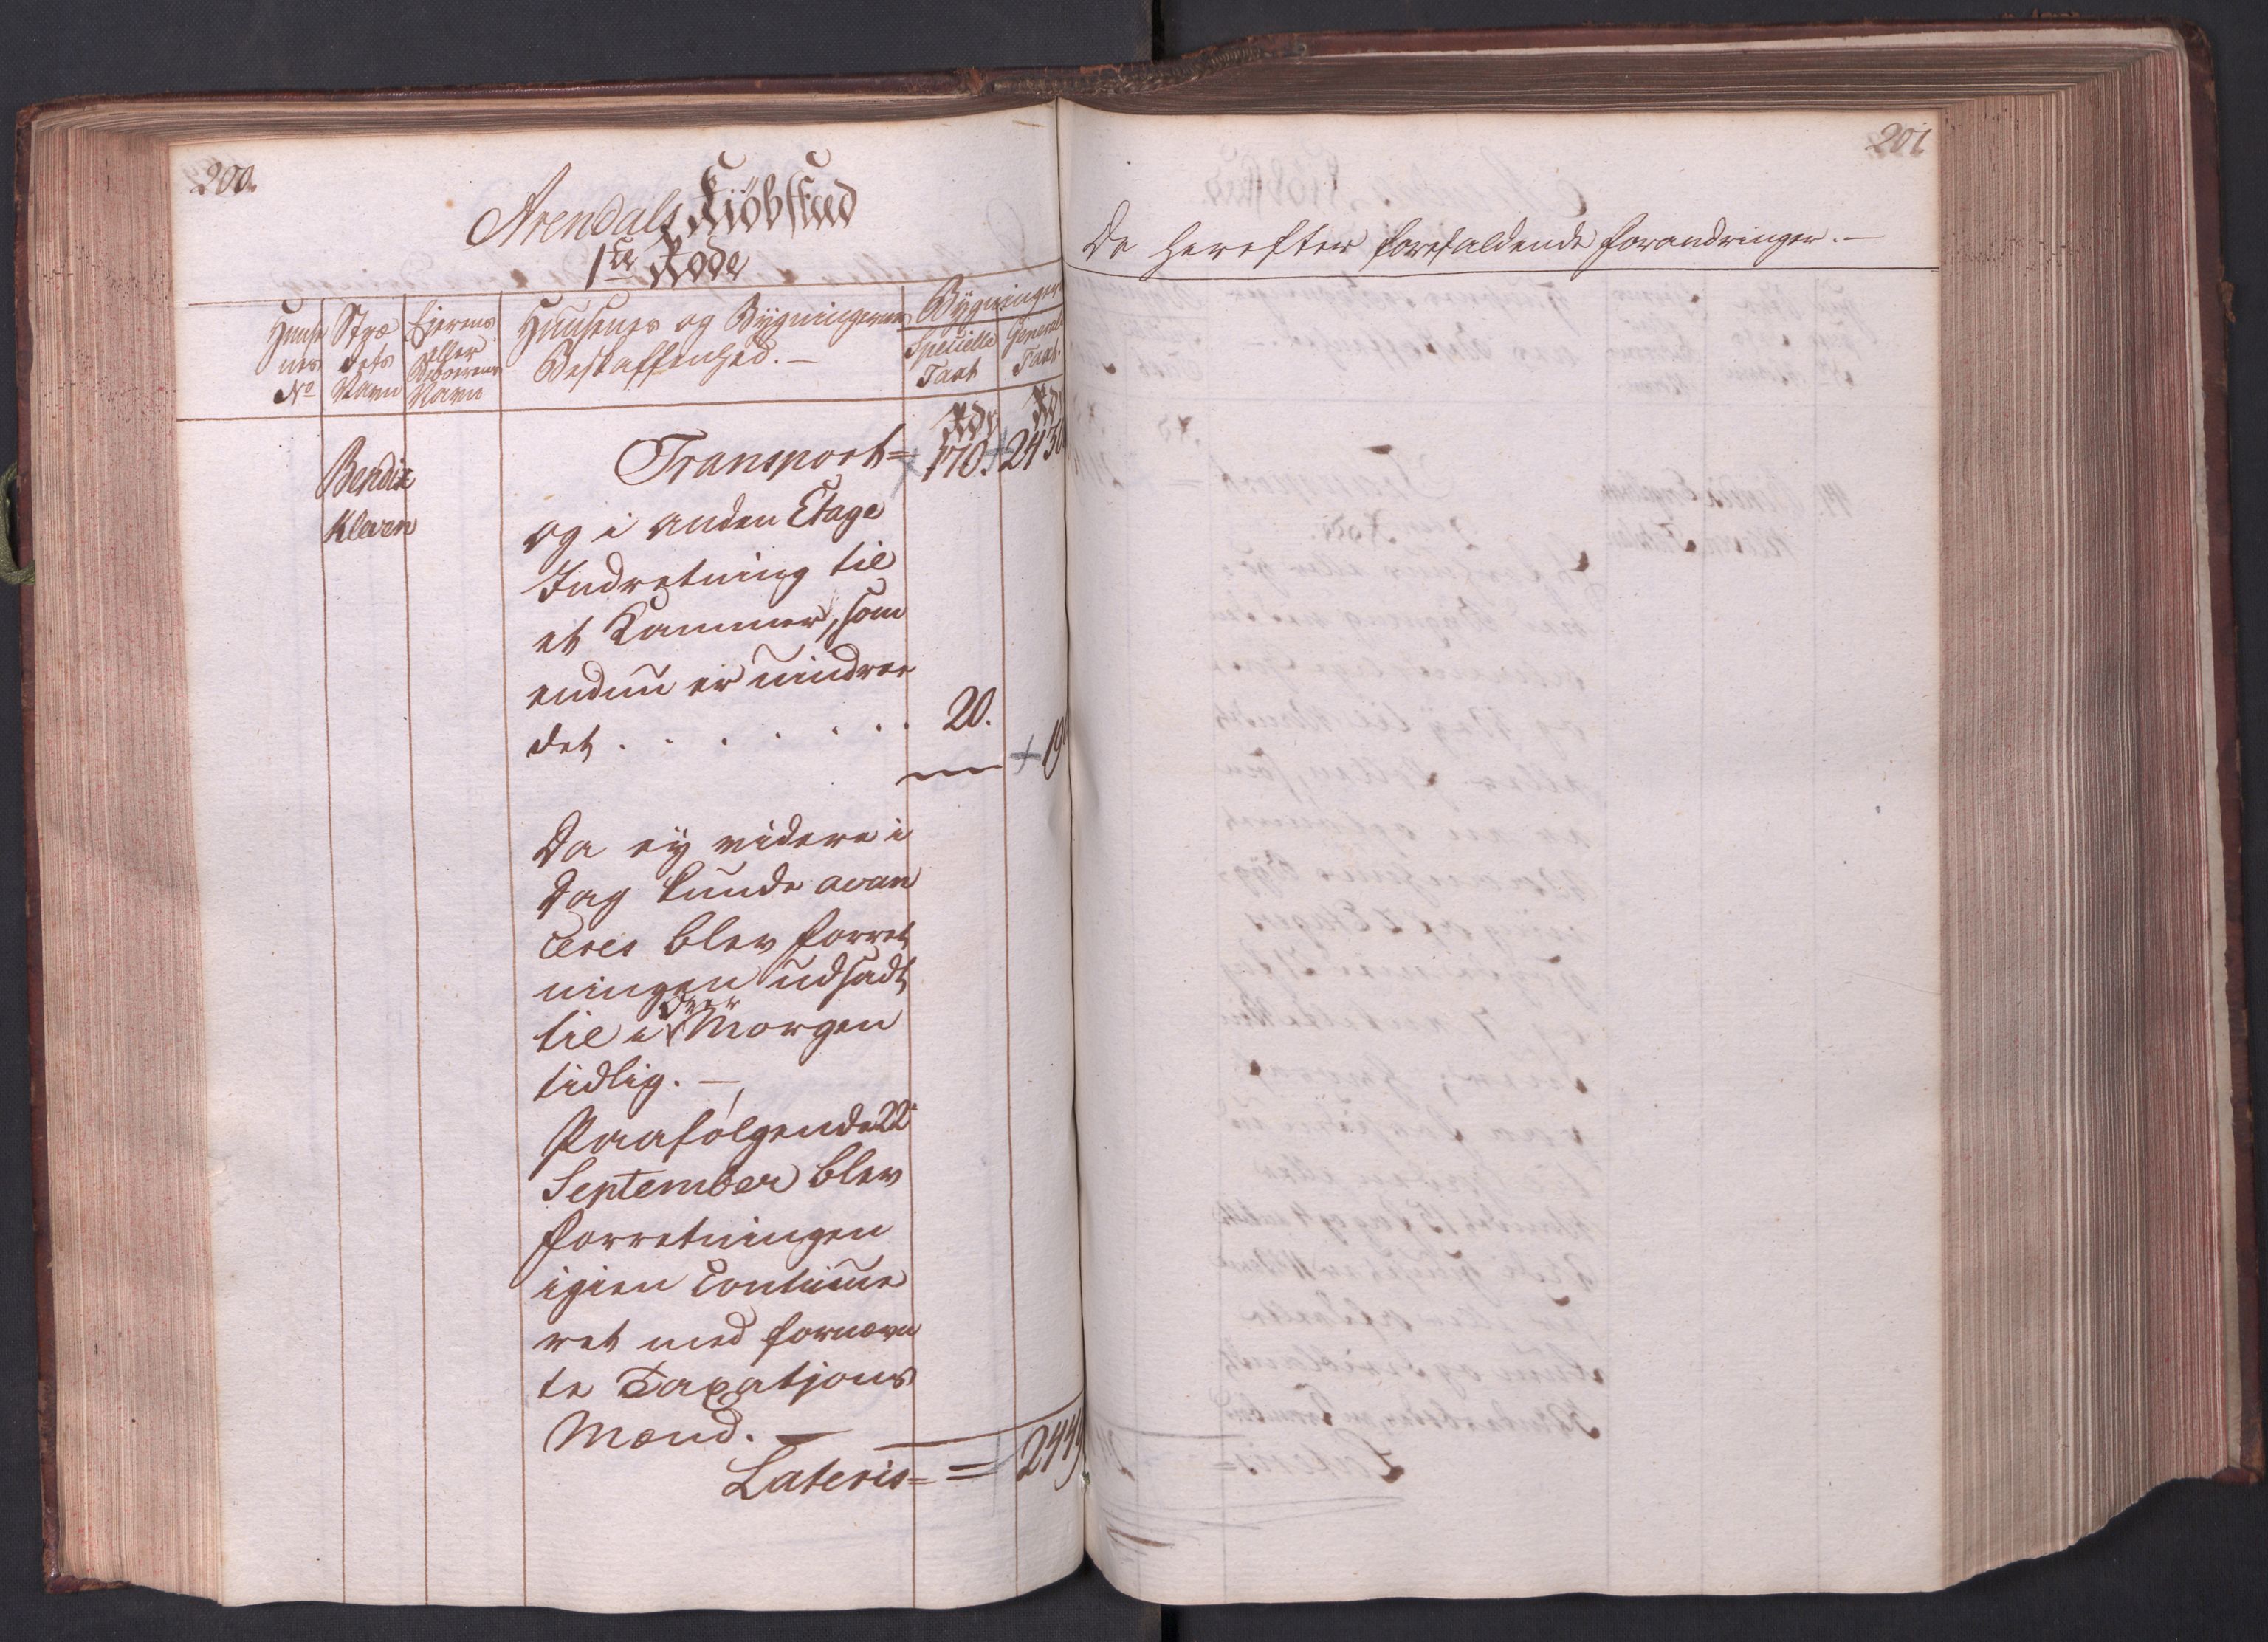 200.
Arendals Kiöbstæd
1ste Rode
Huuse
nes
No
Stræ
dets
Navn
Eierens
eller
Beboerens
Navn
Huusenes og Bygningernes
Beskaffenhed. —
Bygninger
Specielle
Taxt
Generale
Taxt.
Rdr
Rdr
Bendix
Kleven
Transport =
170.
og i anden Etage
Indretning til
et Kammer, som
endnu er uindree
det . . . . . . . 20.
Da ey videre i
Dag kunde avan
ceres blev forret
ningen udsadt
til i over Morgen
tidlig. —
Paafølgende 22
September blev
forretningen
igien Continue
ret med fornævn
te Taxations
Mænd. —
Lateris =
201
De herefter forefaldende forandringer. —